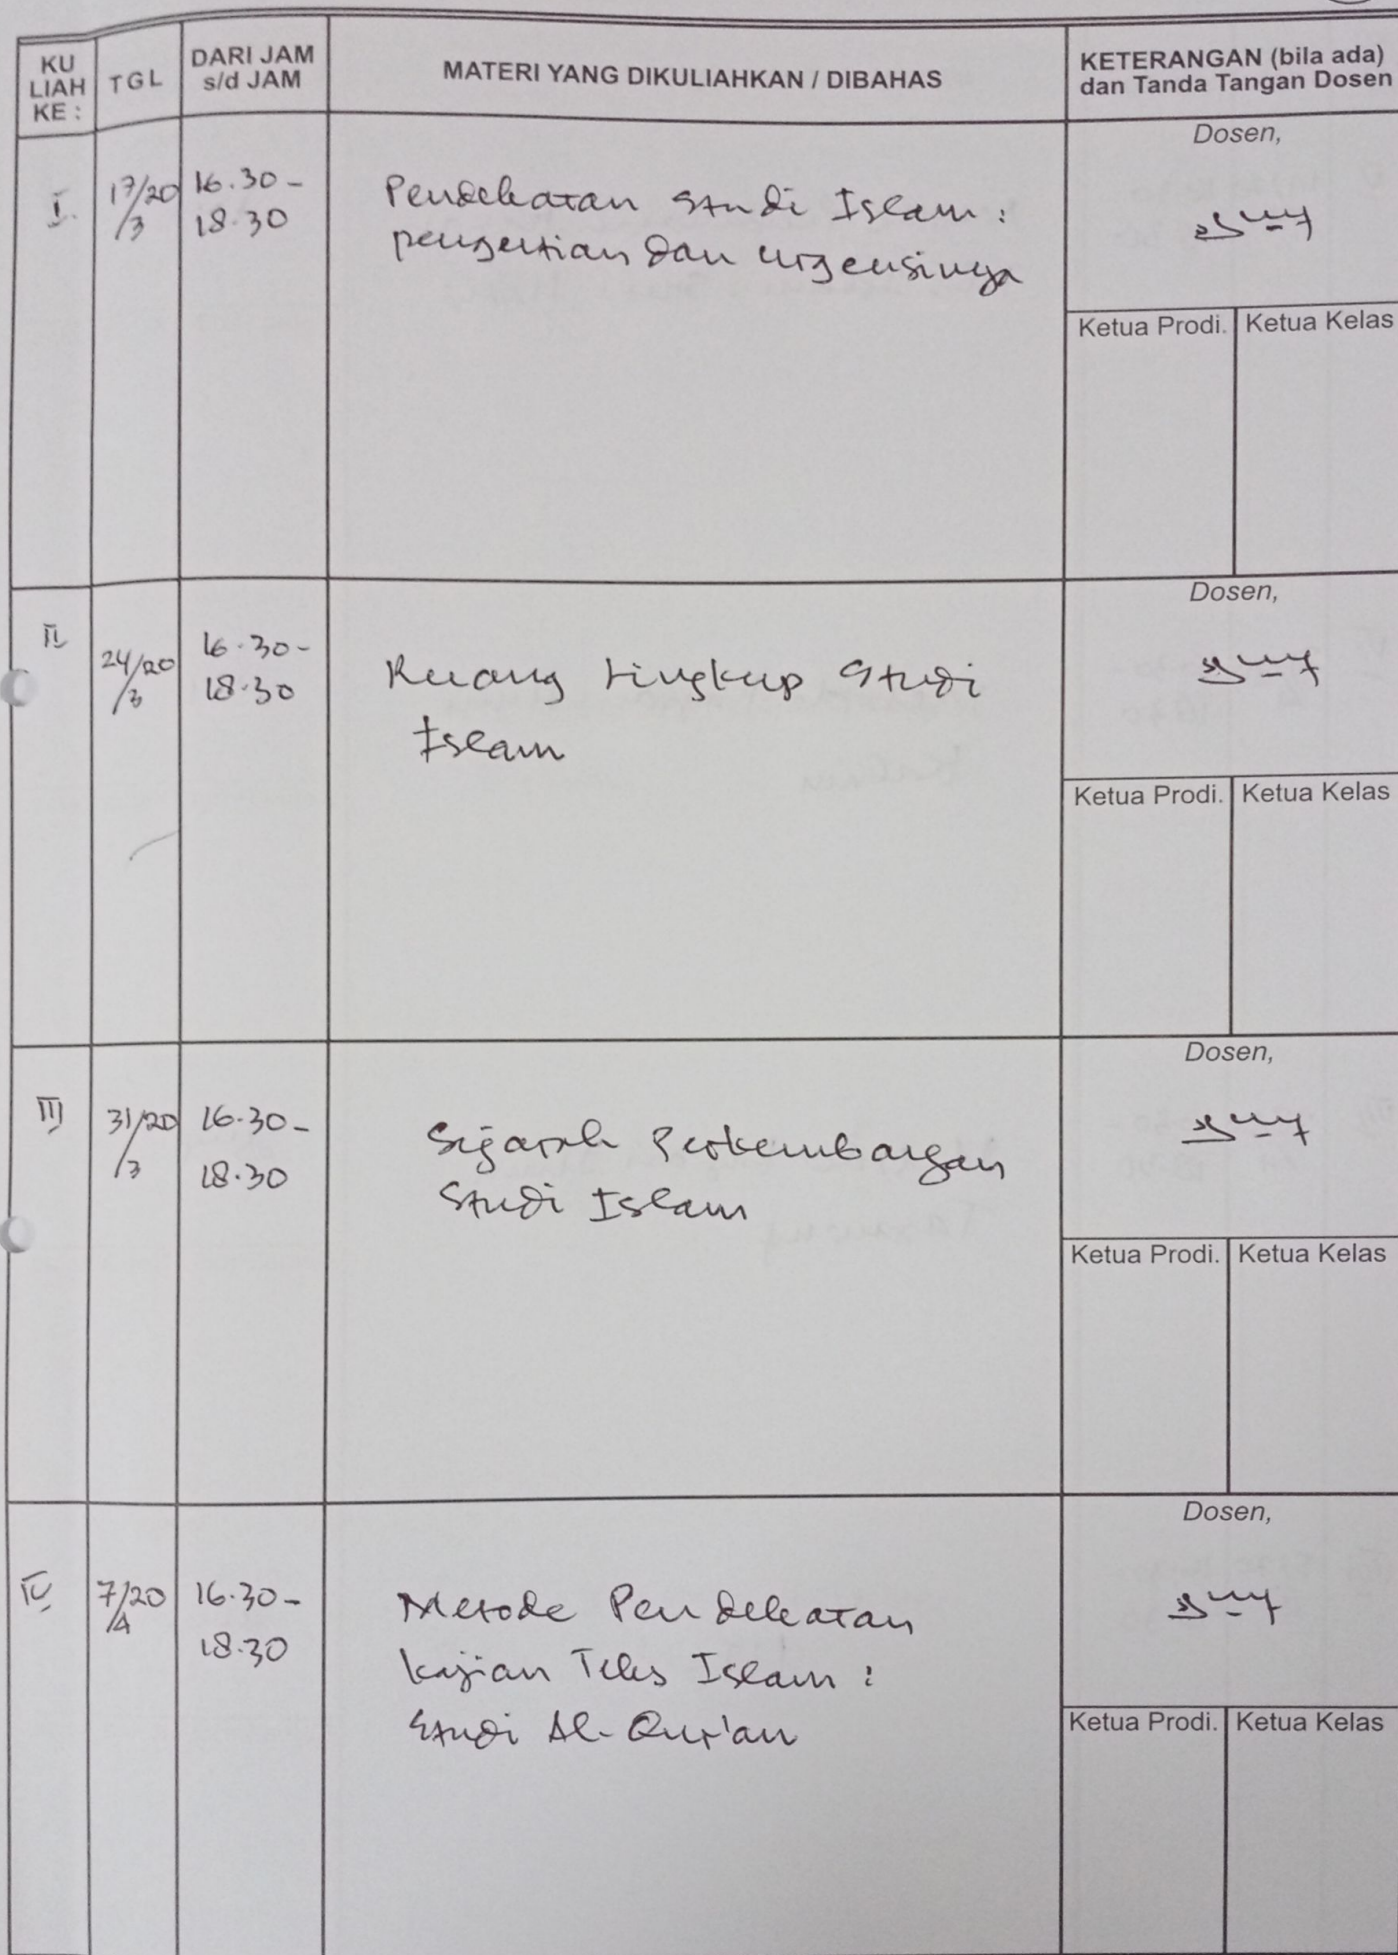 KU
LIAH
KE :
TGL
DARI JAM
s/d JAM
MATERI YANG DIKULIAHKAN / DIBAHAS
KETERANGAN (bila ada)
dan Tanda Tangan Dosen
I.
17/20
/3
16.30 -
18.30
Pendekatan Studi Islam :
pengertian dan urgensinya
Dosen,
Ketua Prodi.
Ketua Kelas
II
24/20
/3
16.30 -
18.30
Ruang Lingkup Studi
Islam
Dosen,
Ketua Prodi.
Ketua Kelas
III
31/20
/3
16.30 -
18.30
Sejarah Perkembangan
Studi Islam
Dosen,
Ketua Prodi.
Ketua Kelas
IV
7/20
/4
16.30 -
18.30
Metode Pendekatan
kajian Teks Islam :
Studi Al-Qur'an
Dosen,
Ketua Prodi.
Ketua Kelas